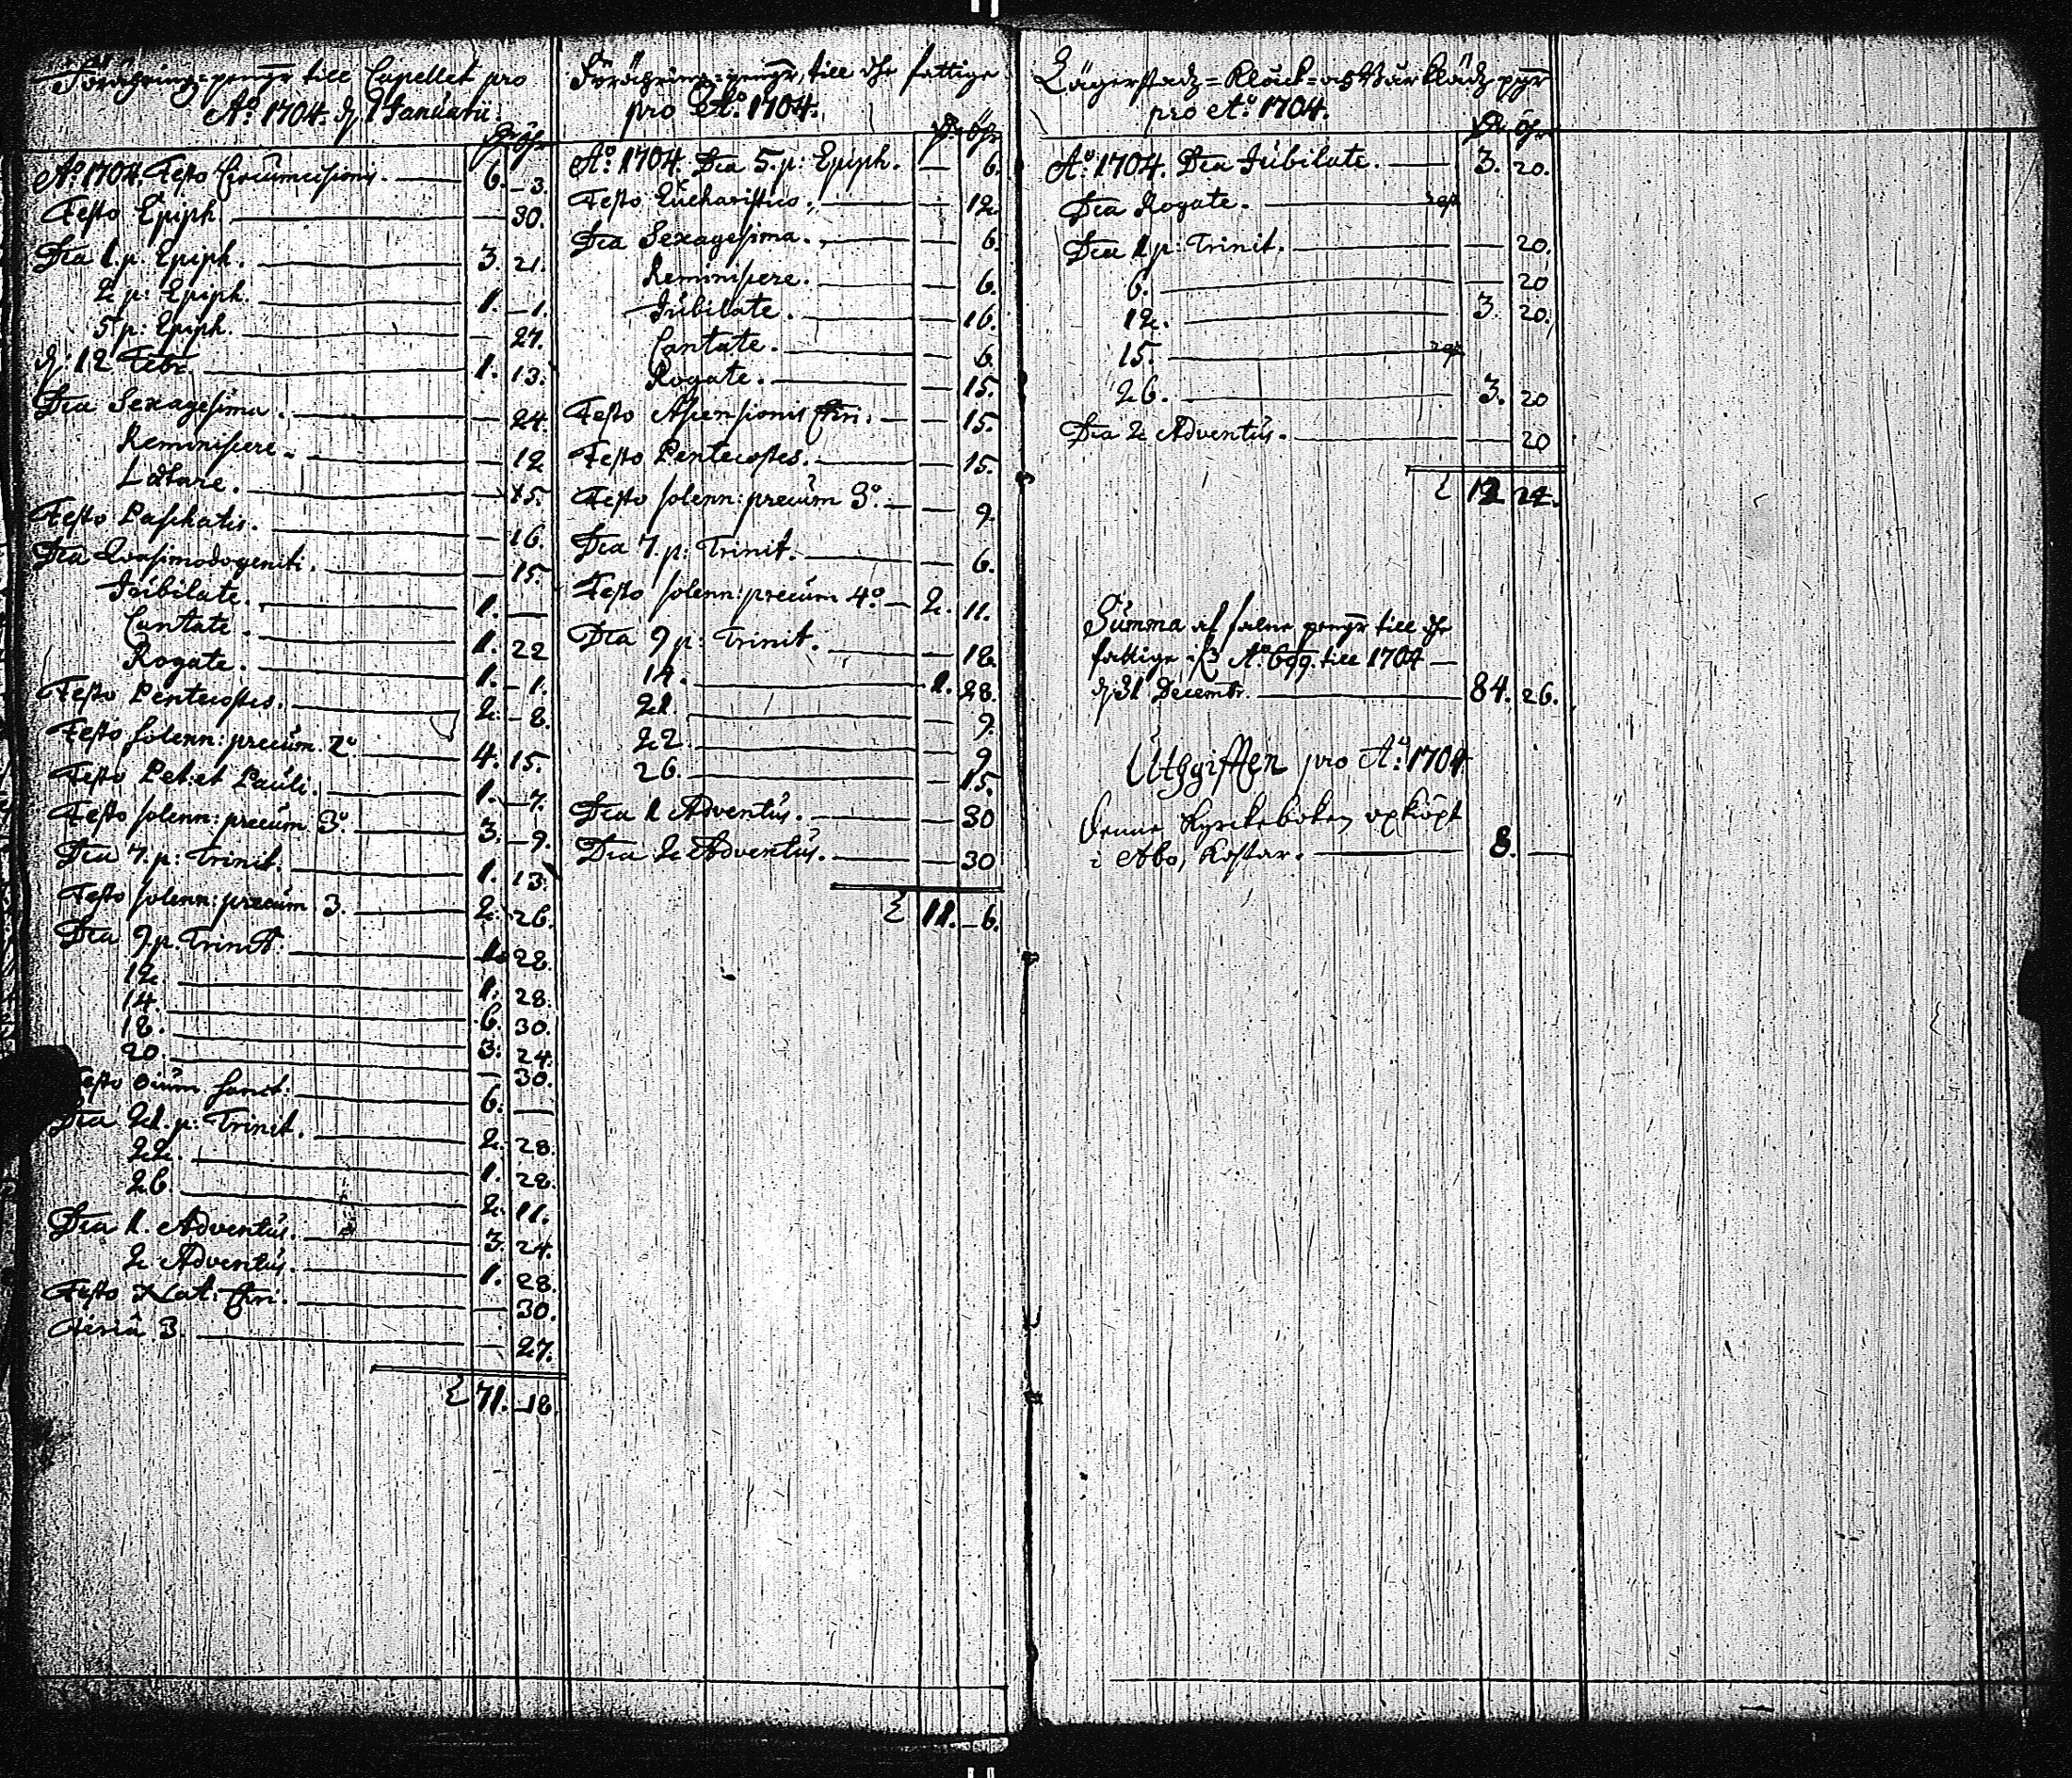 Förähring=pengr till Capellet pro
Ao. 1704. d. 1 Januarii.
Dr öhr
Ao. 1704. Festo Circumcisionis. 6. 3.
Festo Epiph. 30.
Dca 1. p. Epiph. 3. 21.
2 p: Epiph. 1. 1.
5 p: Epiph. 27.
d. 12 Febr. 1. 13.
Dca Sexagesima. 24.
Reminiscere. 12
Lætare. 15.
Festo Paschatis. 16.
Dca Quasimodogeniti. 15.
Jubilate. 1. —
Cantate. 1. 22
Rogate. 1. 1.
Festo Pentecostes. 2. 8.
Festo solenn: precum. 2o. 4. 15.
Festo Pet: et Pauli. 1. 7.
Festo solenn: precum. 3o. 3. 9.
Dca 7. p: Trinit. 1. 13.
Festo solenn: precum. 3. 2. 26.
Dca 9. p. Trinit. 1. 28.
12. 1. 28.
14. 6. 30.
18. 3. 24.
20. 30.
Festo Oium Sanct. 6. —
Dca 21. p: Trinit. 2. 28.
22. 1. 28.
26. 2. 11.
Dca 1. Adventus. 3. 24.
2 Adventus. 1. 28.
Festo Nat. Chri. 30.
Feria 3. 27.
71. 18.
Förähring=pengr, till dhe fattige
pro Ao. 1704.
Dr öhr
Ao. 1704. Dca 5. p: Epiph. 6.
Festo Eucharistico. 12.
Dca Sexagesima. 6.
Reminiscere. 6.
Jubilate. 16.
Cantate. 6.
Rogate. 15.
Festo Ascensionis Chri. 15.
Festo Pentecostes. 15.
Festo solenn: precum 3o. 9.
Dca 7. p: Trinit. 6.
Festo solenn: precum 4o. 2. 11.
Dca 9 p: Trinit. 12.
14. 1. 28.
21. 9.
22. 9
26. 15.
Dca 1 Adventus. 30
Dca 2 Adventus. 30
11. 6.
Lägerstadz= Klåck= och Bårklädz pgr
pro Ao. 1704.
Dr öhr
Ao. 1704. Dca Jubilate. 3. 20.
Dca Rogate.
Dca 1 p: Trinit. 20.
6. 20
12. 3. 20.
15.
26. 3. 20
Dca 2 Adventus. 20
Summa af falne pengr till dhe
fattige ifr. Ao 699. till 1704
d. 31 Decembr. 84. 26.
Uthgifften pro Ao. 1704
Denne Kyrckeboken upköpt
i Åbo, kostar. 8. —